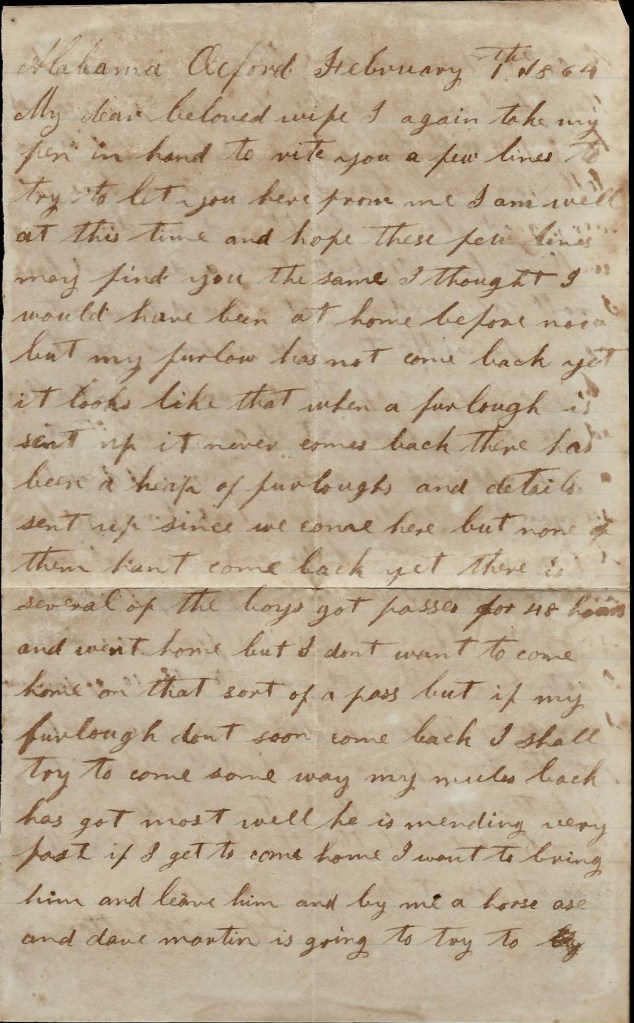 Alabama Oxford February 1the 1864
My dear beloved wife I again take my
pen in hand to rite you a few lines to
try to let you here from me I am well
at this time and hope these few lines
may find you the same I thought I
would have been at home before now
but my furlow has not come back yet
it looks like that when a furlough is
sent up it never comes back there has
been a heap of furloughs and details
sent up since we come here but none of
them hant come back yet there is
several of the boys got passes for 48 hours
and went home but I dont want to come
home on that sort of a pass but if my
furlough dont soon come back I shall
try to come some way my mules back
has got most well he is mending very
fast if I get to come home I want to bring
him and leave him and by me a horse
and dave martin is going to try to